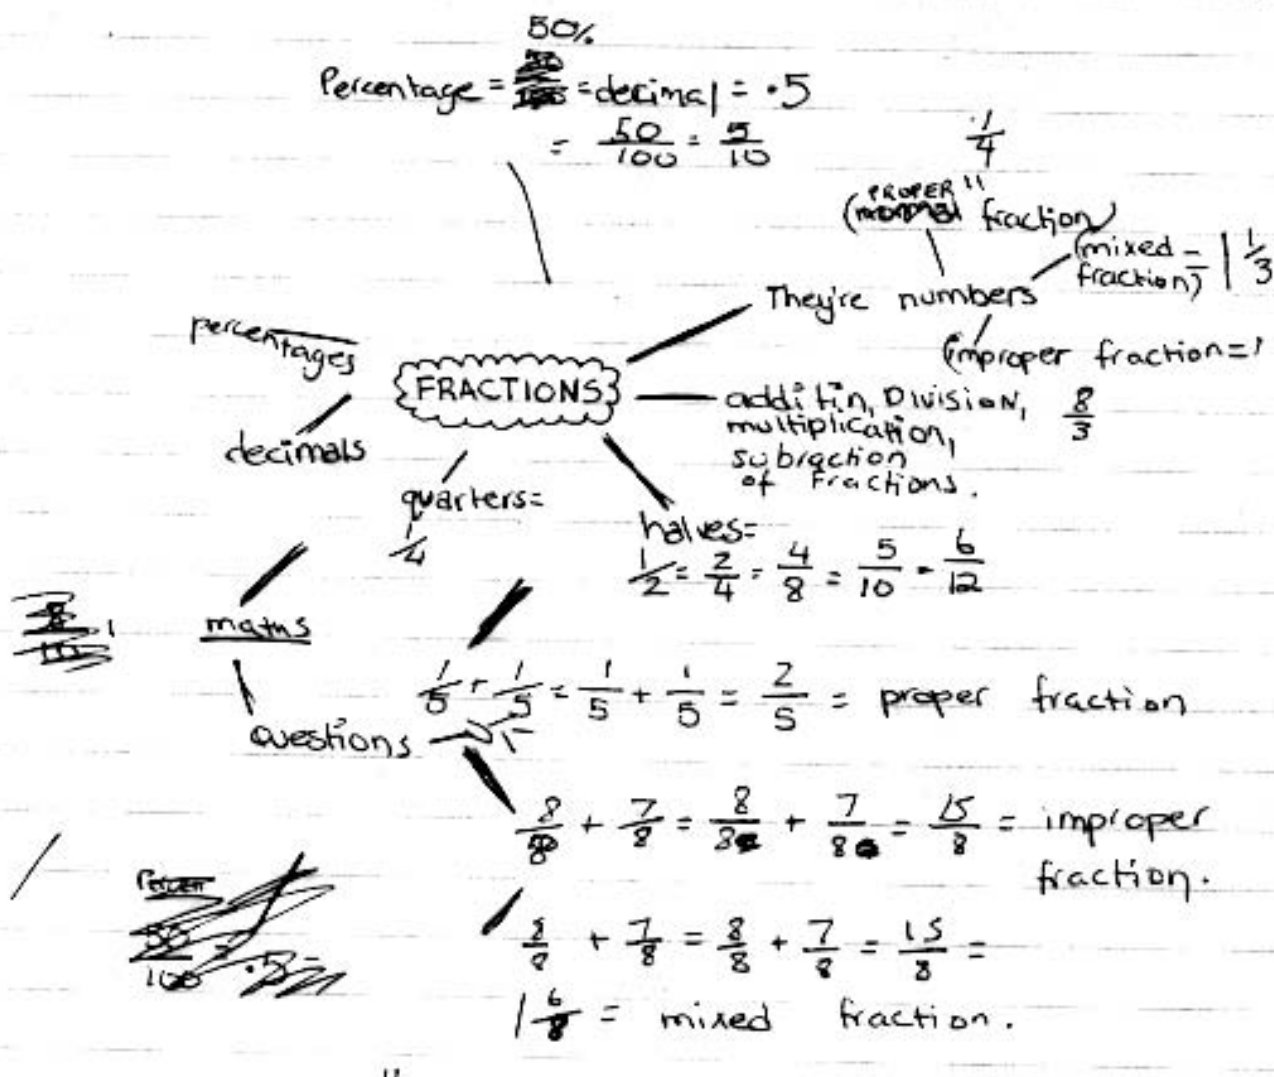 50%
Percentage = = decimal = .5
= 50/100 = 5/10
1/4
"
(PROPER fraction)
(mixed = 1 1/3
fraction)
They're numbers
(improper fraction =
8/3
percentages
FRACTIONS
additin, DIVISION,
multiplication,
subraction
of Fractions.
decimals
quarters =
1/4
halves =
1/2 = 2/4 = 4/8 = 5/10 = 6/12
maths
questions
1/5 + 1/5 = 1/5 + 1/5 = 2/5 = proper fraction
8/8 + 7/8 = 8/8 + 7/8 = 15/8 = improper
fraction.
8/8 + 7/8 = 8/8 + 7/8 = 15/8 =
1 6/8 = mixed fraction.